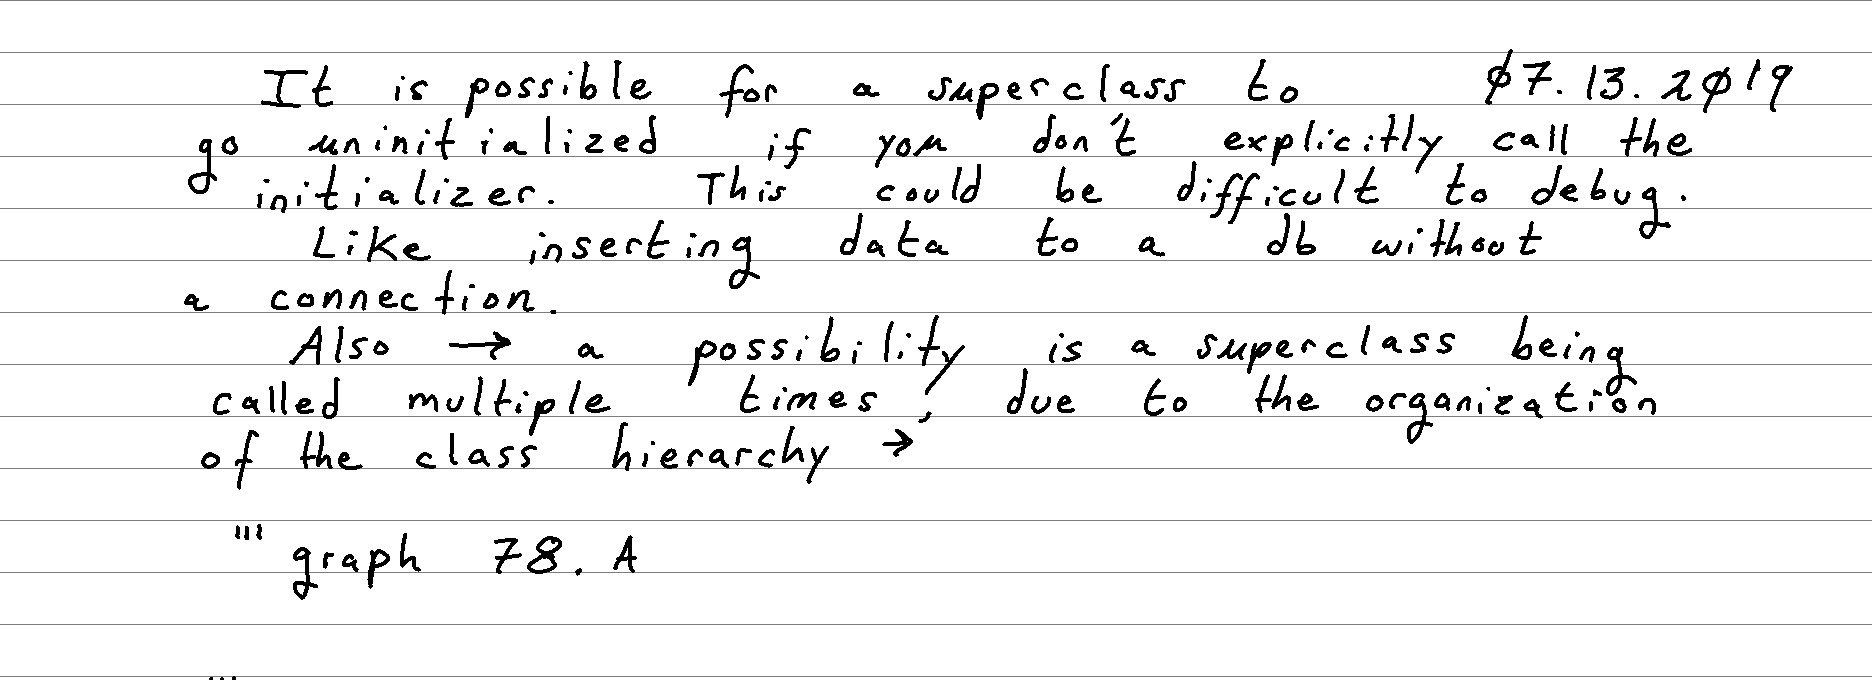 It is possible for a superclass to 07.13.2019
go uninitialized if you don't explicitly call the
initializer. This could be difficult to debug.
Like inserting data to a db without
a connection.
Also → a possibility is a superclass being
called multiple times, due to the organization
of the class hierarchy →
''' graph 78. A
'''